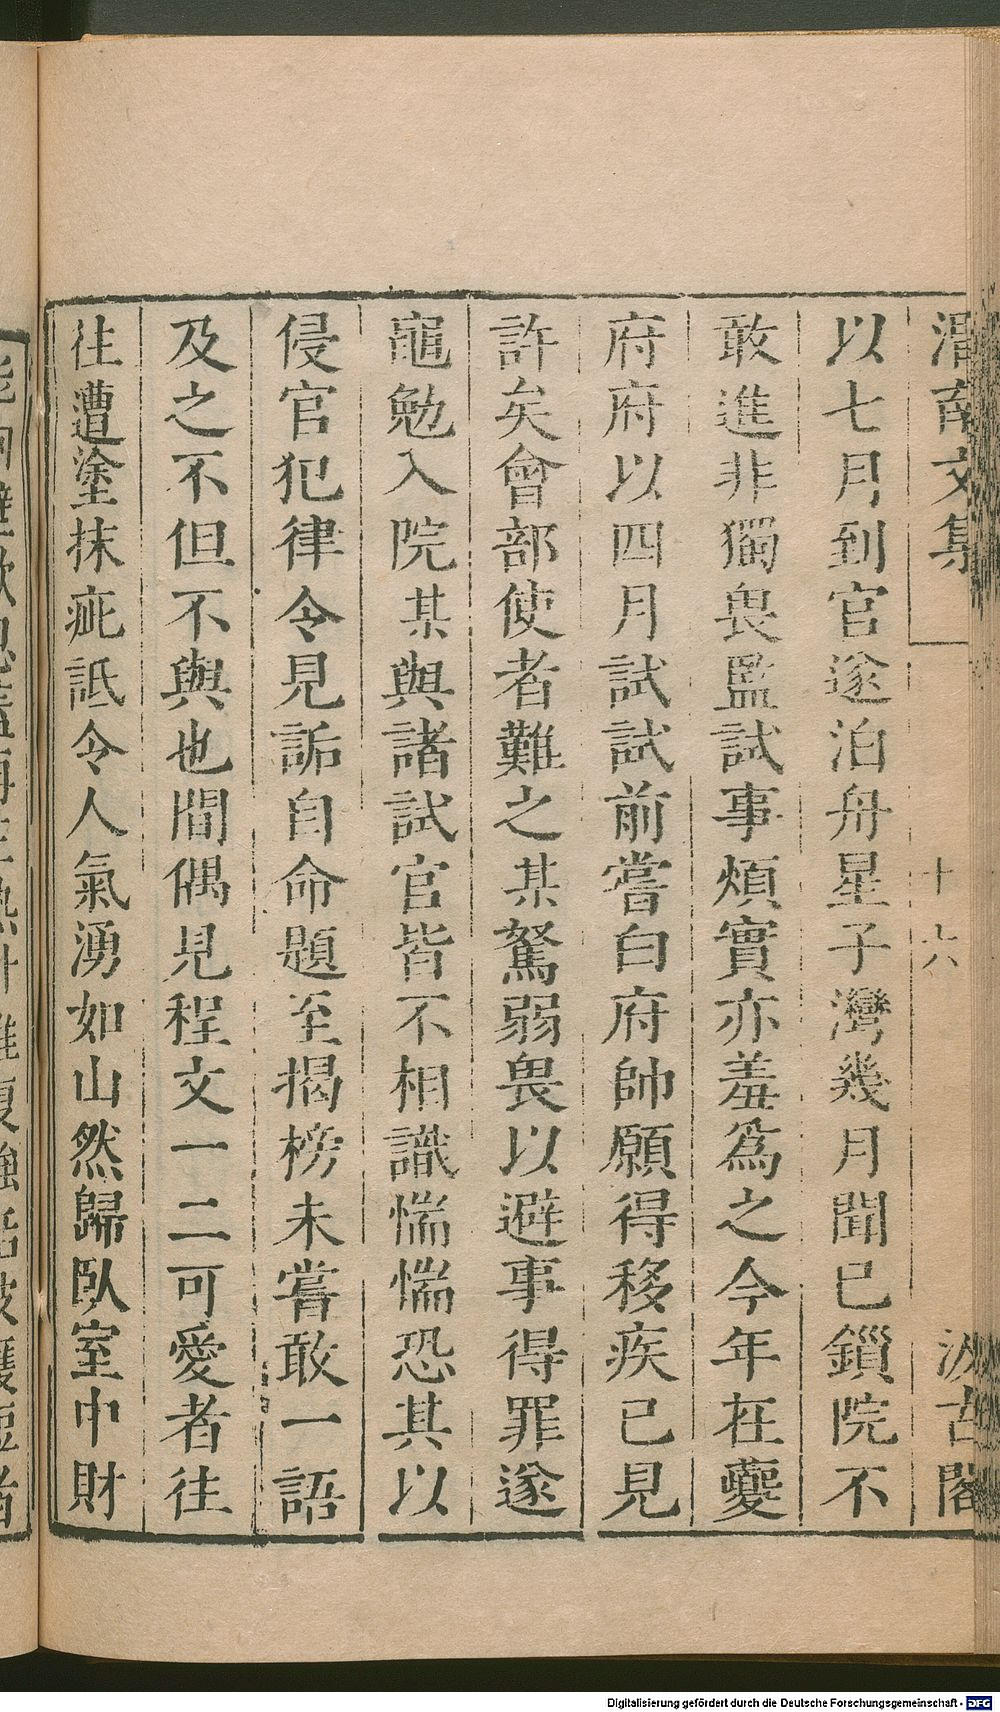 渭南文集 十六 汲古閣
以七月到官遂泊舟星子灣幾月聞已鎻院不
敢進非獨畏監試事煩實亦羞爲之今年在夔
府府以四月試試前嘗白府帥願得移疾已見
許矣會部使者難之某駑弱畏以避事得罪遂
黽勉入院某與諸試官皆不相識惴惴恐其以
侵官犯律令見詬自命題至揭榜未嘗敢一語
及之不但不與也間偶見程文一二可愛者往
往遭塗抹疵詆令人氣湧如山然歸臥室中財
Digitalisierung gefördert durch die Deutsche Forschungsgemeinschaft - DFG